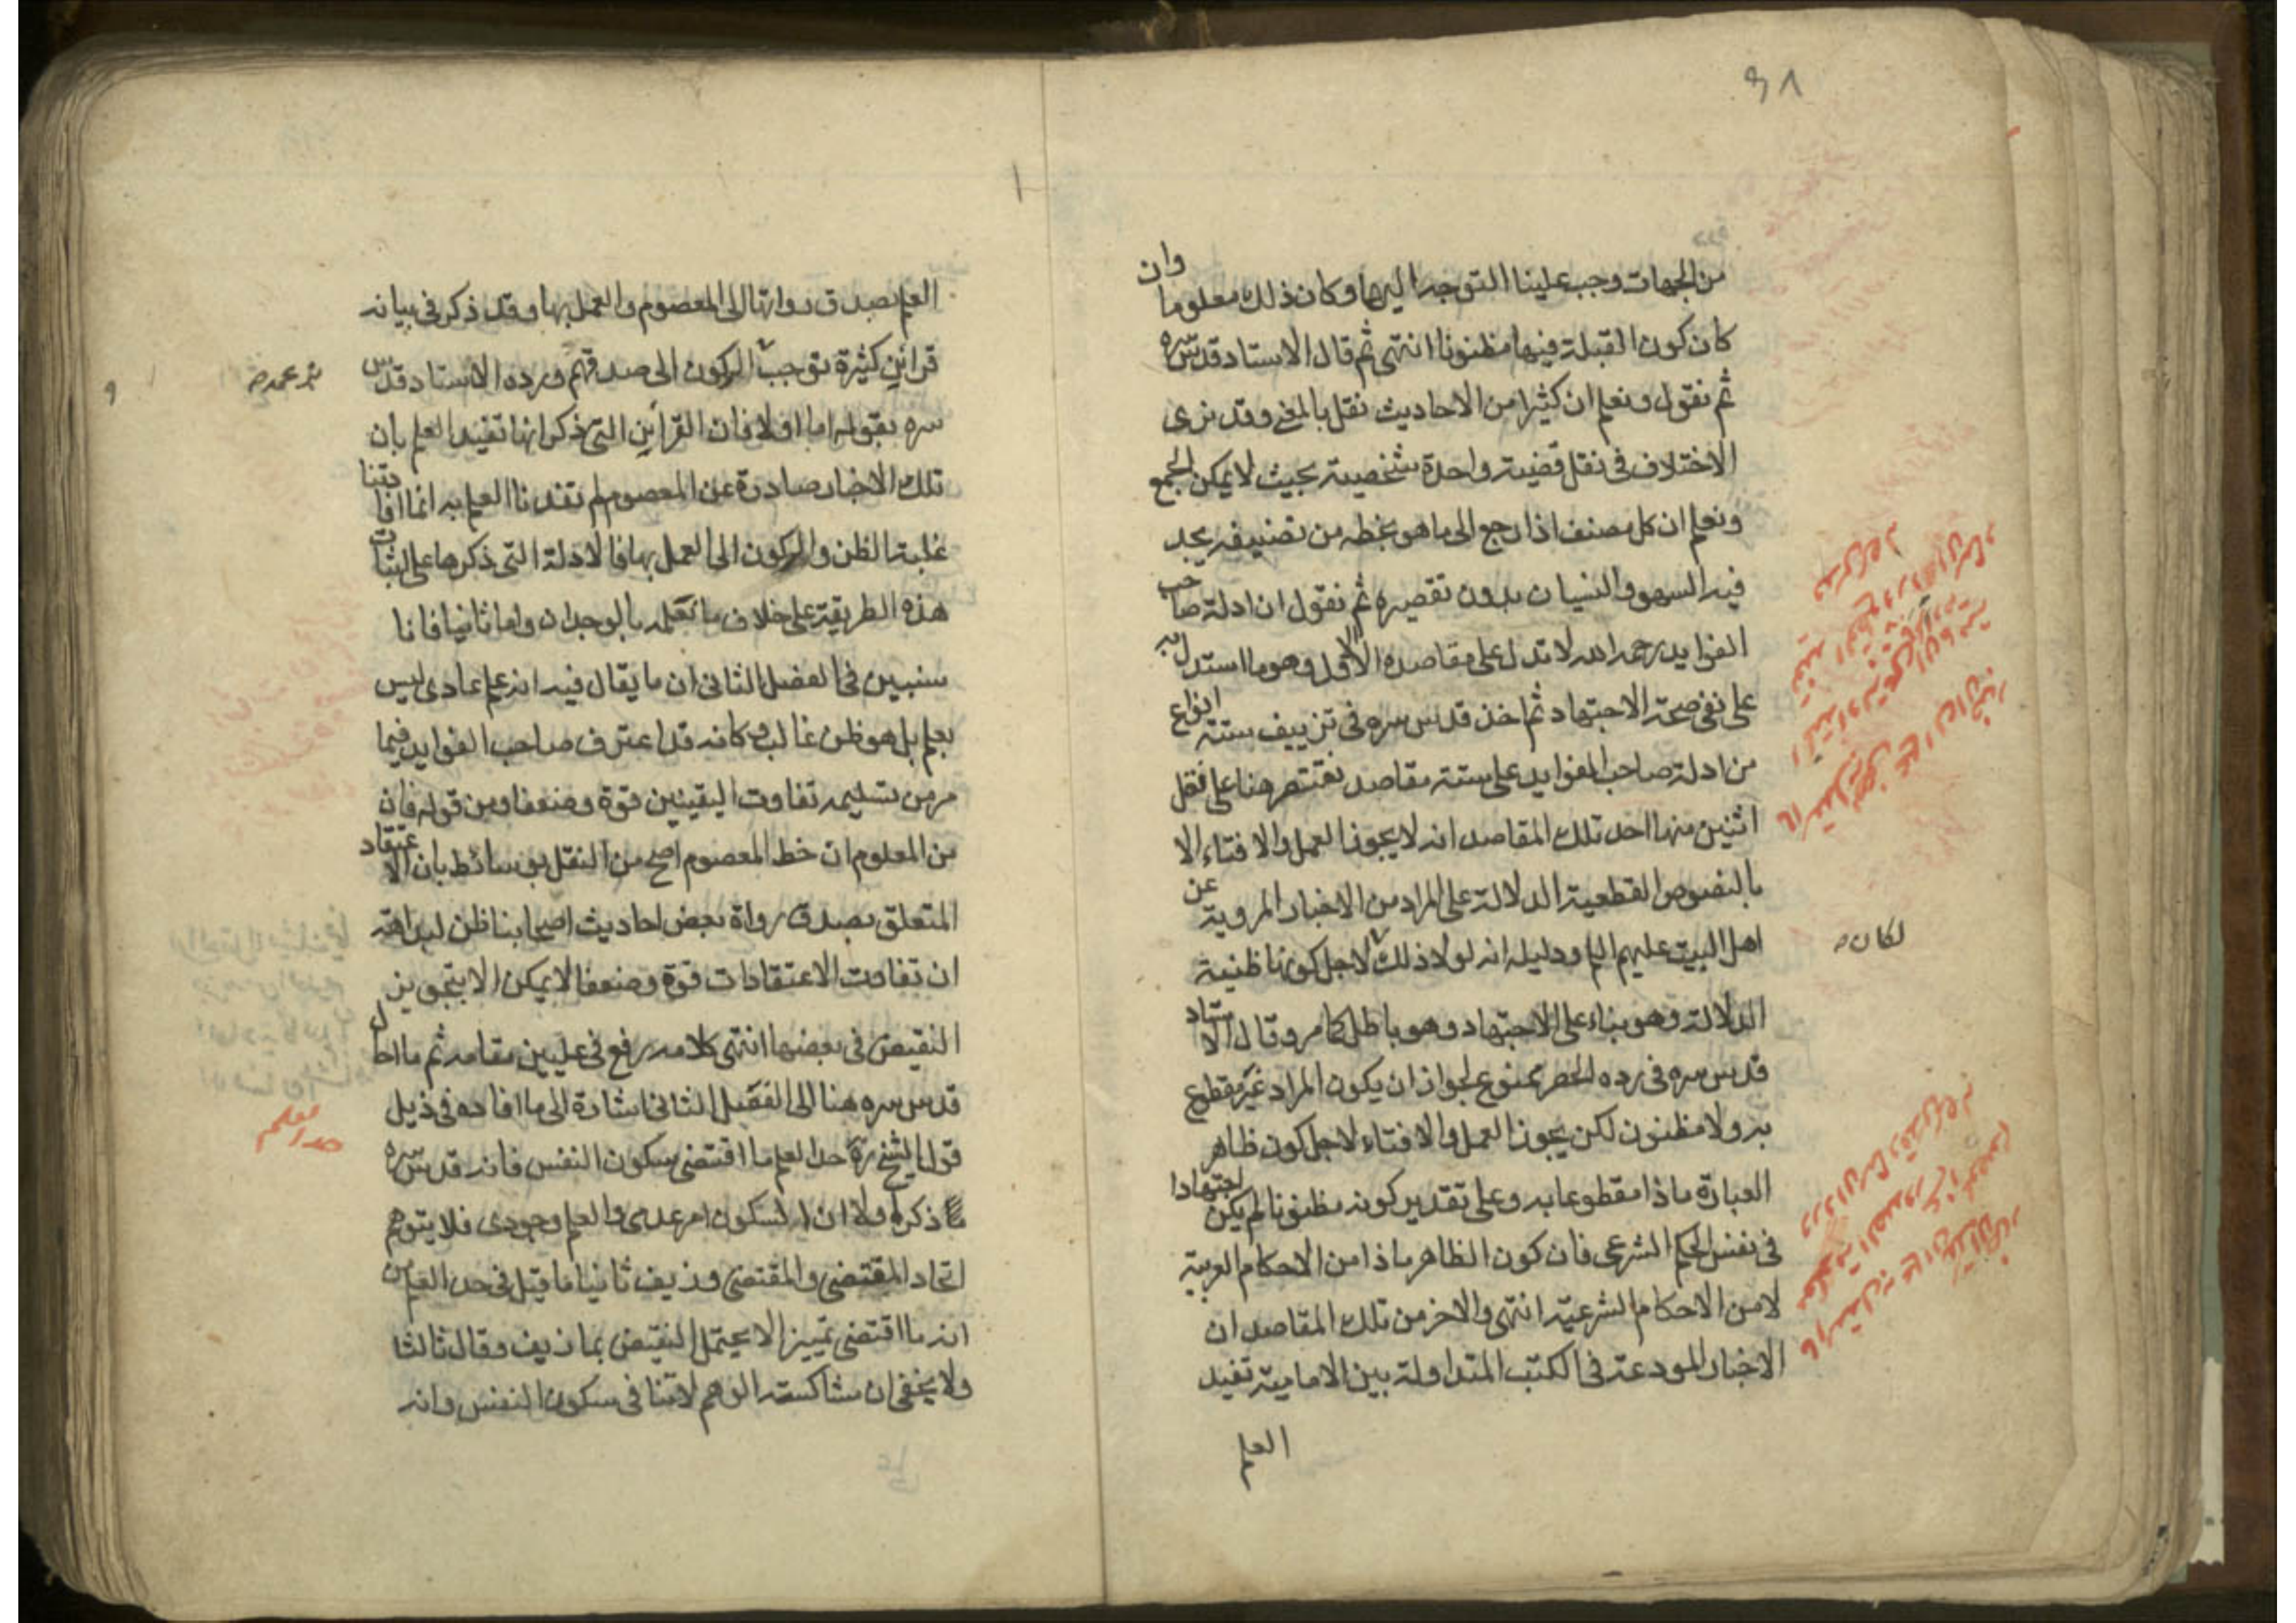 ٩٨
من الجهات وجب علينا التوجه اليها وكان ذلك معلوما وان
كان كون القبلة فيها مظنونا انتهى ثم قال الاستاد قدس سره
ثم نقول ونعلم ان كثيرا من الاحاديث نقل بالمعنى وقد نرى
الاختلاف في نقل قضية واحدة شخصية بحيث لا يمكن الجمع
ونعلم ان كل مصنف اذا رجع الى ما هو بخطه من تصنيفه يجد
فيه السهو والنسيان بدون تقصيره ثم نقول ان ادلة صاحب
الفوايد رحمه الله لا تدل على مقاصده الاول وهو ما استدل به
على نفي صحة الاجتهاد ثم اخذ قدس سره في تزييف ستة انواع
من ادلة صاحب الفوايد على ستة مقاصد نقتصر هنا على نقل
اثنين منها احد تلك المقاصد انه لا يجوز العمل والافتاء الا
بالنصوص القطعية الدلالة على المراد من الاخبار المروية عن
اهل البيت عليهم السلم ودليله انه لولا ذلك لاجل كونها ظنية
لكان
الدلالة وهو بناء على الاجتهاد وهو باطل كما مر وقال الاستاد
قدس سره في رده الحصر ممنوع لجواز ان يكون المراد غير مقطوع
به ولا مظنون لكن يجوز العمل والافتاء لاجل كون ظاهر
العبارة ماذا مقطوعا به وعلى تقدير كونه مظنونا لم يكن اجتهادا
في نفس الحكم الشرعي فان كون الظاهر ماذا من الاحكام العربية
لا من الاحكام الشرعية انتهى والاخر من تلك المقاصد ان
الاخبار المودعة في الكتب المتداولة بين الامامية تفيد
العلم
العلم بصدق رواتها الى المعصوم والعمل بها وقد ذكر في بيانه
قرائن كثيرة توجب الركون الى صدقهم ورده الاستاد قدس
سره بقوله اما اولا فان القرائن التي ذكر انها تفيد العلم بان
تلك الاخبار صادرة عن المعصوم لم تفدنا العلم به انما افادتنا
غلبة الظن والركون الى العمل بها فالادلة التي ذكرها على اثبات
هذه الطريقة على خلاف ما نعلمه بالوجدان واما ثانيا فانا
سنبين في الفصل الثاني ان ما يقال فيه انه علم عادى ليس
بعلم بل هو ظن غالب وكانه قد اعترف صاحب الفوايد فيما
مر من تسليمه تفاوت اليقينين قوة وضعفا ومن قوله فان
من المعلوم ان خط المعصوم اصح من النقل بوسائط بان الاعتقاد
المتعلق بصدق رواة بعض احاديث اصحابنا ظن لبداهة
ان تفاوت الاعتقادات قوة وضعفا لا يمكن الا بتجويز
النقيض في بعضها انتهى كلامه رفع في عليين مقامه ثم ما احال
قدس سره هنا الى الفصل الثاني اشارة الى ما افاده في ذيل
قول الشيخ ره حد العلم ما اقتضى سكون النفس فانه قدس سره
ذكر اولا ان السكون امر عدمى والعلم وجودى فلا يتوهم
اتحاد المقتضى والمقتضى وزيف ثانيا ما قيل في حد العلم من
انه ما اقتضى تمييزا لا يحتمل النقيض بما زيف وقال ثالثا
ولا يخفى ان مشاكسة الوهم لاتنافى سكون النفس وانه
حد العلم